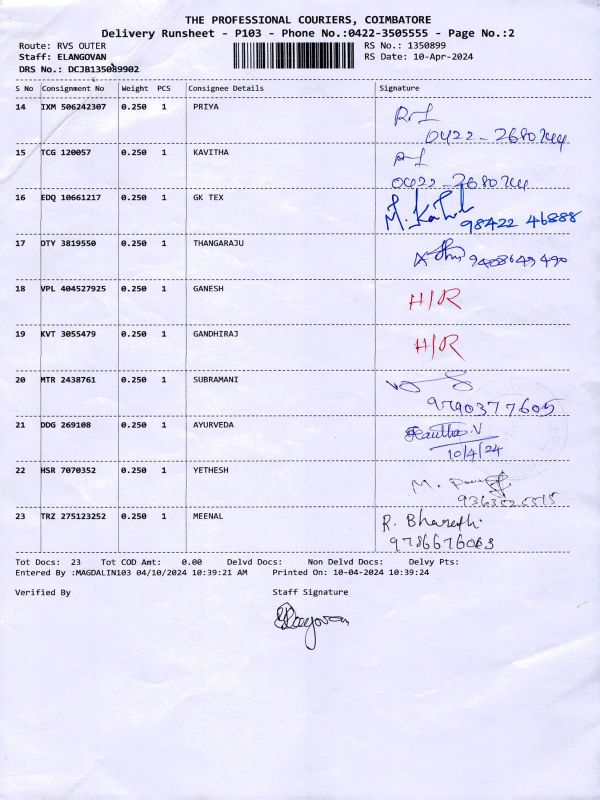 THE PROFESSIONAL COURIERS, COIMBATORE
Delivery Runsheet - P103 - Phone No.:0422-3505555 - Page No.:2
Route: RVS OUTER RS No.: 1350899
Staff: ELANGOVAN RS Date: 10-Apr-2024
DRS No.: DCJB135089902
S No Consignment No Weight PCS Consignee Details Signature
14 IXM 506242307 0.250 1 PRIYA
0422-2680744
15 TCG 120057 0.250 1 KAVITHA
0422-2680744
16 EDQ 10661217 0.250 1 GK TEX
98422 46888
17 OTY 3819550 0.250 1 THANGARAJU
18 VPL 404527925 0.250 1 GANESH H/R
19 KVT 3055479 0.250 1 GANDHIRAJ H/R
20 MTR 2438761 0.250 1 SUBRAMANI
9790377605
21 DDG 269108 0.250 1 AYURVEDA
10/4/24
22 HSR 7070352 0.250 1 YETHESH M.
23 TRZ 275123252 0.250 1 MEENAL R. Bharathi
9786676063
Tot Docs: 23 Tot COD Amt: 0.00 Delvd Docs: Non Delvd Docs: Delvy Pts:
Entered By :MAGDALIN103 04/10/2024 10:39:21 AM Printed On: 10-04-2024 10:39:24
Verified By Staff Signature
Elangovan